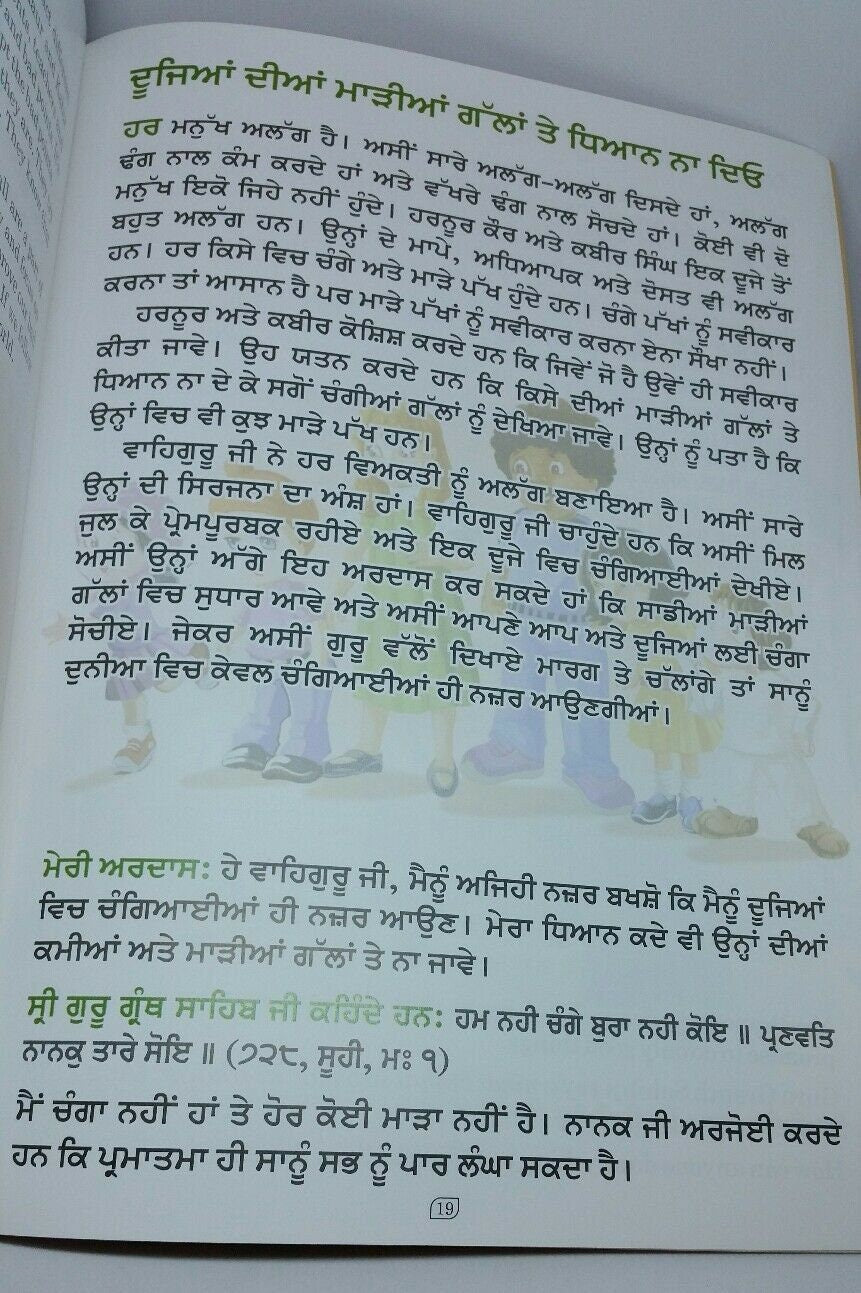 ਦੂਜਿਆਂ ਦੀਆਂ ਮਾੜੀਆਂ ਗੱਲਾਂ ਤੇ ਧਿਆਨ ਨਾ ਦਿਓ
ਹਰ ਮਨੁੱਖ ਅਲੱਗ ਹੈ। ਅਸੀਂ ਸਾਰੇ ਅਲੱਗ-ਅਲੱਗ ਦਿਸਦੇ ਹਾਂ, ਅਲੱਗ
ਢੰਗ ਨਾਲ ਕੰਮ ਕਰਦੇ ਹਾਂ ਅਤੇ ਵੱਖਰੇ ਢੰਗ ਨਾਲ ਸੋਚਦੇ ਹਾਂ। ਕੋਈ ਵੀ ਦੋ
ਮਨੁੱਖ ਇਕੋ ਜਿਹੇ ਨਹੀਂ ਹੁੰਦੇ। ਹਰਨੂਰ ਕੌਰ ਅਤੇ ਕਬੀਰ ਸਿੰਘ ਇਕ ਦੂਜੇ ਤੋਂ
ਬਹੁਤ ਅਲੱਗ ਹਨ। ਉਨ੍ਹਾਂ ਦੇ ਮਾਪੇ, ਅਧਿਆਪਕ ਅਤੇ ਦੋਸਤ ਵੀ ਅਲੱਗ
ਹਨ। ਹਰ ਕਿਸੇ ਵਿਚ ਚੰਗੇ ਅਤੇ ਮਾੜੇ ਪੱਖ ਹੁੰਦੇ ਹਨ। ਚੰਗੇ ਪੱਖਾਂ ਨੂੰ ਸਵੀਕਾਰ
ਕਰਨਾ ਤਾਂ ਆਸਾਨ ਹੈ ਪਰ ਮਾੜੇ ਪੱਖਾਂ ਨੂੰ ਸਵੀਕਾਰ ਕਰਨਾ ਏਨਾ ਸੌਖਾ ਨਹੀਂ।
ਹਰਨੂਰ ਅਤੇ ਕਬੀਰ ਕੋਸ਼ਿਸ਼ ਕਰਦੇ ਹਨ ਕਿ ਜਿਵੇਂ ਜੋ ਹੈ ਉਵੇਂ ਹੀ ਸਵੀਕਾਰ
ਕੀਤਾ ਜਾਵੇ। ਉਹ ਯਤਨ ਕਰਦੇ ਹਨ ਕਿ ਕਿਸੇ ਦੀਆਂ ਮਾੜੀਆਂ ਗੱਲਾਂ ਤੇ
ਧਿਆਨ ਨਾ ਦੇ ਕੇ ਸਗੋਂ ਚੰਗੀਆਂ ਗੱਲਾਂ ਨੂੰ ਦੇਖਿਆ ਜਾਵੇ। ਉਨ੍ਹਾਂ ਨੂੰ ਪਤਾ ਹੈ ਕਿ
ਉਨ੍ਹਾਂ ਵਿਚ ਵੀ ਕੁਝ ਮਾੜੇ ਪੱਖ ਹਨ।
ਵਾਹਿਗੁਰੂ ਜੀ ਨੇ ਹਰ ਵਿਅਕਤੀ ਨੂੰ ਅਲੱਗ ਬਣਾਇਆ ਹੈ। ਅਸੀਂ ਸਾਰੇ
ਉਨ੍ਹਾਂ ਦੀ ਸਿਰਜਨਾ ਦਾ ਅੰਸ਼ ਹਾਂ। ਵਾਹਿਗੁਰੂ ਜੀ ਚਾਹੁੰਦੇ ਹਨ ਕਿ ਅਸੀਂ ਮਿਲ
ਜੁਲ ਕੇ ਪ੍ਰੇਮਪੂਰਬਕ ਰਹੀਏ ਅਤੇ ਇਕ ਦੂਜੇ ਵਿਚ ਚੰਗਿਆਈਆਂ ਦੇਖੀਏ।
ਅਸੀਂ ਉਨ੍ਹਾਂ ਅੱਗੇ ਇਹ ਅਰਦਾਸ ਕਰ ਸਕਦੇ ਹਾਂ ਕਿ ਸਾਡੀਆਂ ਮਾੜੀਆਂ
ਗੱਲਾਂ ਵਿਚ ਸੁਧਾਰ ਆਵੇ ਅਤੇ ਅਸੀਂ ਆਪਣੇ ਆਪ ਅਤੇ ਦੂਜਿਆਂ ਲਈ ਚੰਗਾ
ਸੋਚੀਏ। ਜੇਕਰ ਅਸੀਂ ਗੁਰੂ ਵੱਲੋਂ ਦਿਖਾਏ ਮਾਰਗ ਤੇ ਚੱਲਾਂਗੇ ਤਾਂ ਸਾਨੂੰ
ਦੁਨੀਆ ਵਿਚ ਕੇਵਲ ਚੰਗਿਆਈਆਂ ਹੀ ਨਜ਼ਰ ਆਉਣਗੀਆਂ।
ਮੇਰੀ ਅਰਦਾਸ: ਹੇ ਵਾਹਿਗੁਰੂ ਜੀ, ਮੈਨੂੰ ਅਜਿਹੀ ਨਜ਼ਰ ਬਖਸ਼ੋ ਕਿ ਮੈਨੂੰ ਦੂਜਿਆਂ
ਵਿਚ ਚੰਗਿਆਈਆਂ ਹੀ ਨਜ਼ਰ ਆਉਣ। ਮੇਰਾ ਧਿਆਨ ਕਦੇ ਵੀ ਉਨ੍ਹਾਂ ਦੀਆਂ
ਕਮੀਆਂ ਅਤੇ ਮਾੜੀਆਂ ਗੱਲਾਂ ਤੇ ਨਾ ਜਾਵੇ।
ਸ੍ਰੀ ਗੁਰੂ ਗ੍ਰੰਥ ਸਾਹਿਬ ਜੀ ਕਹਿੰਦੇ ਹਨ: ਹਮ ਨਹੀ ਚੰਗੇ ਬੁਰਾ ਨਹੀ ਕੋਇ ॥ ਪ੍ਰਣਵਤਿ
ਨਾਨਕੁ ਤਾਰੇ ਸੋਇ ॥ (੭੨੮, ਸੂਹੀ, ਮਃ ੧)
ਮੈਂ ਚੰਗਾ ਨਹੀਂ ਹਾਂ ਤੇ ਹੋਰ ਕੋਈ ਮਾੜਾ ਨਹੀਂ ਹੈ। ਨਾਨਕ ਜੀ ਅਰਜੋਈ ਕਰਦੇ
ਹਨ ਕਿ ਪ੍ਰਮਾਤਮਾ ਹੀ ਸਾਨੂੰ ਸਭ ਨੂੰ ਪਾਰ ਲੰਘਾ ਸਕਦਾ ਹੈ।
19